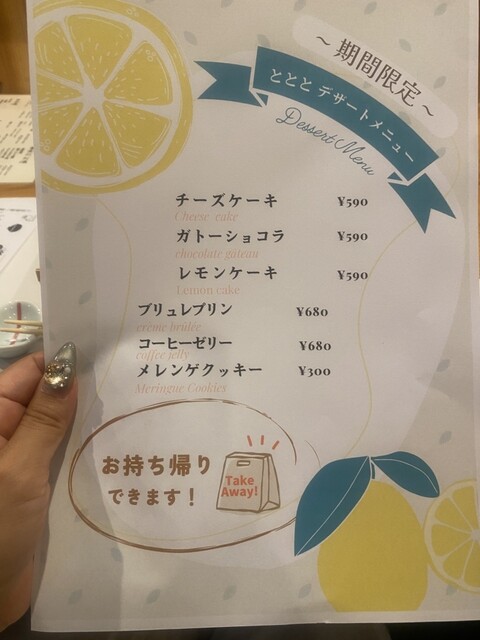 ～期間限定～
ととと デザートメニュー
Dessert Menu
チーズケーキ ¥590
Cheese cake
ガトーショコラ ¥590
chocolate gateau
レモンケーキ ¥590
Lemon cake
ブリュレプリン ¥680
creme brulee
コーヒーゼリー ¥680
coffee jelly
メレンゲクッキー ¥300
Meringue Cookies
お持ち帰り
できます！
Take
Away!